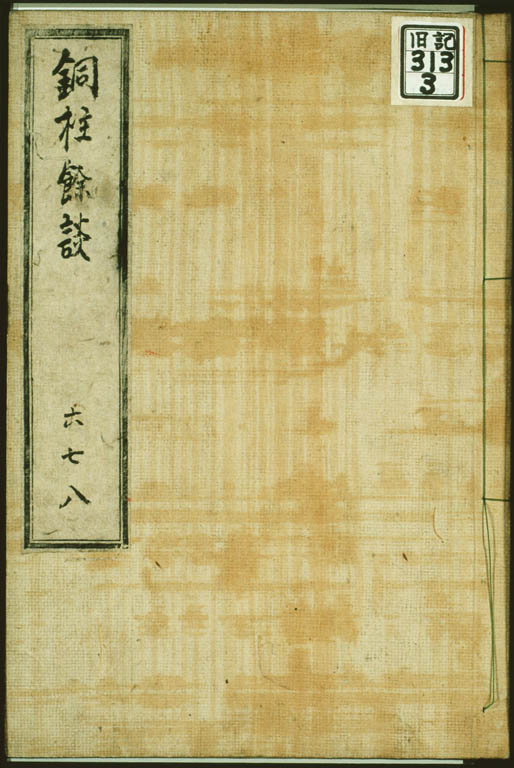 銅柱餘談
六七八
旧記
313
3